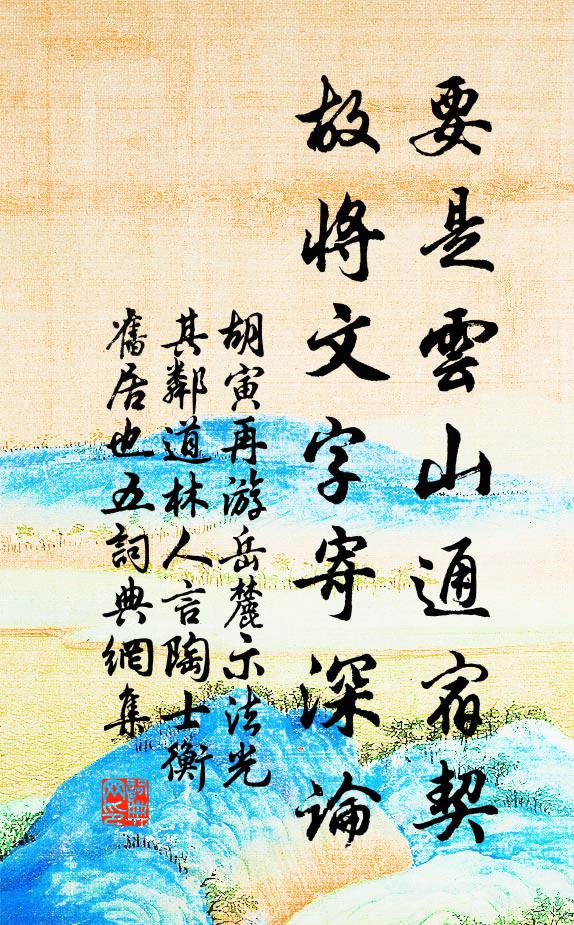 要是雲山通宿契
故將文字寄深論
胡寅再游岳麓示法光
其鄰道林人言陶士衡
舊居也五詞典網集